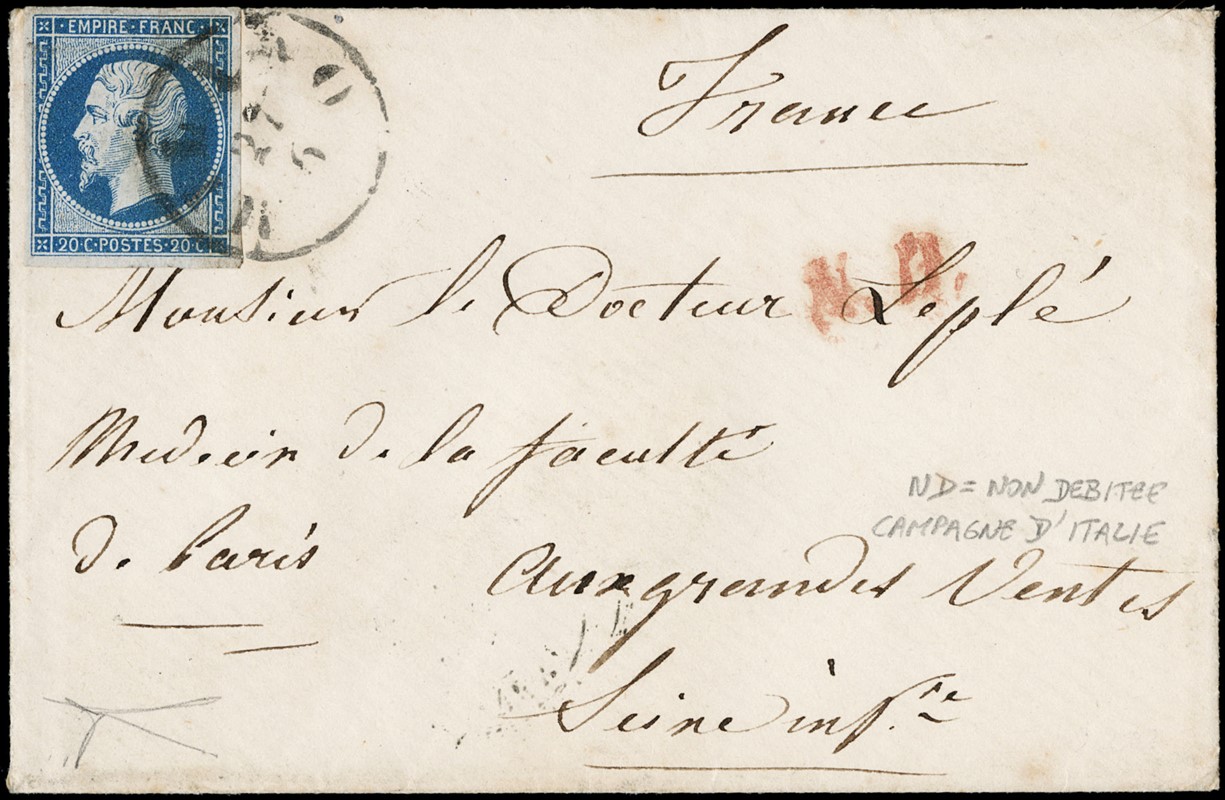 EMPIRE · FRANC
20·C·POSTES·20·C
France
N. D.
Monsieur le Docteur Leplé
Medecin de la faculté
de Paris
ND = NON DEBITEE
CAMPAGNE D'ITALIE
Aux grandes Ventes
Seine infre